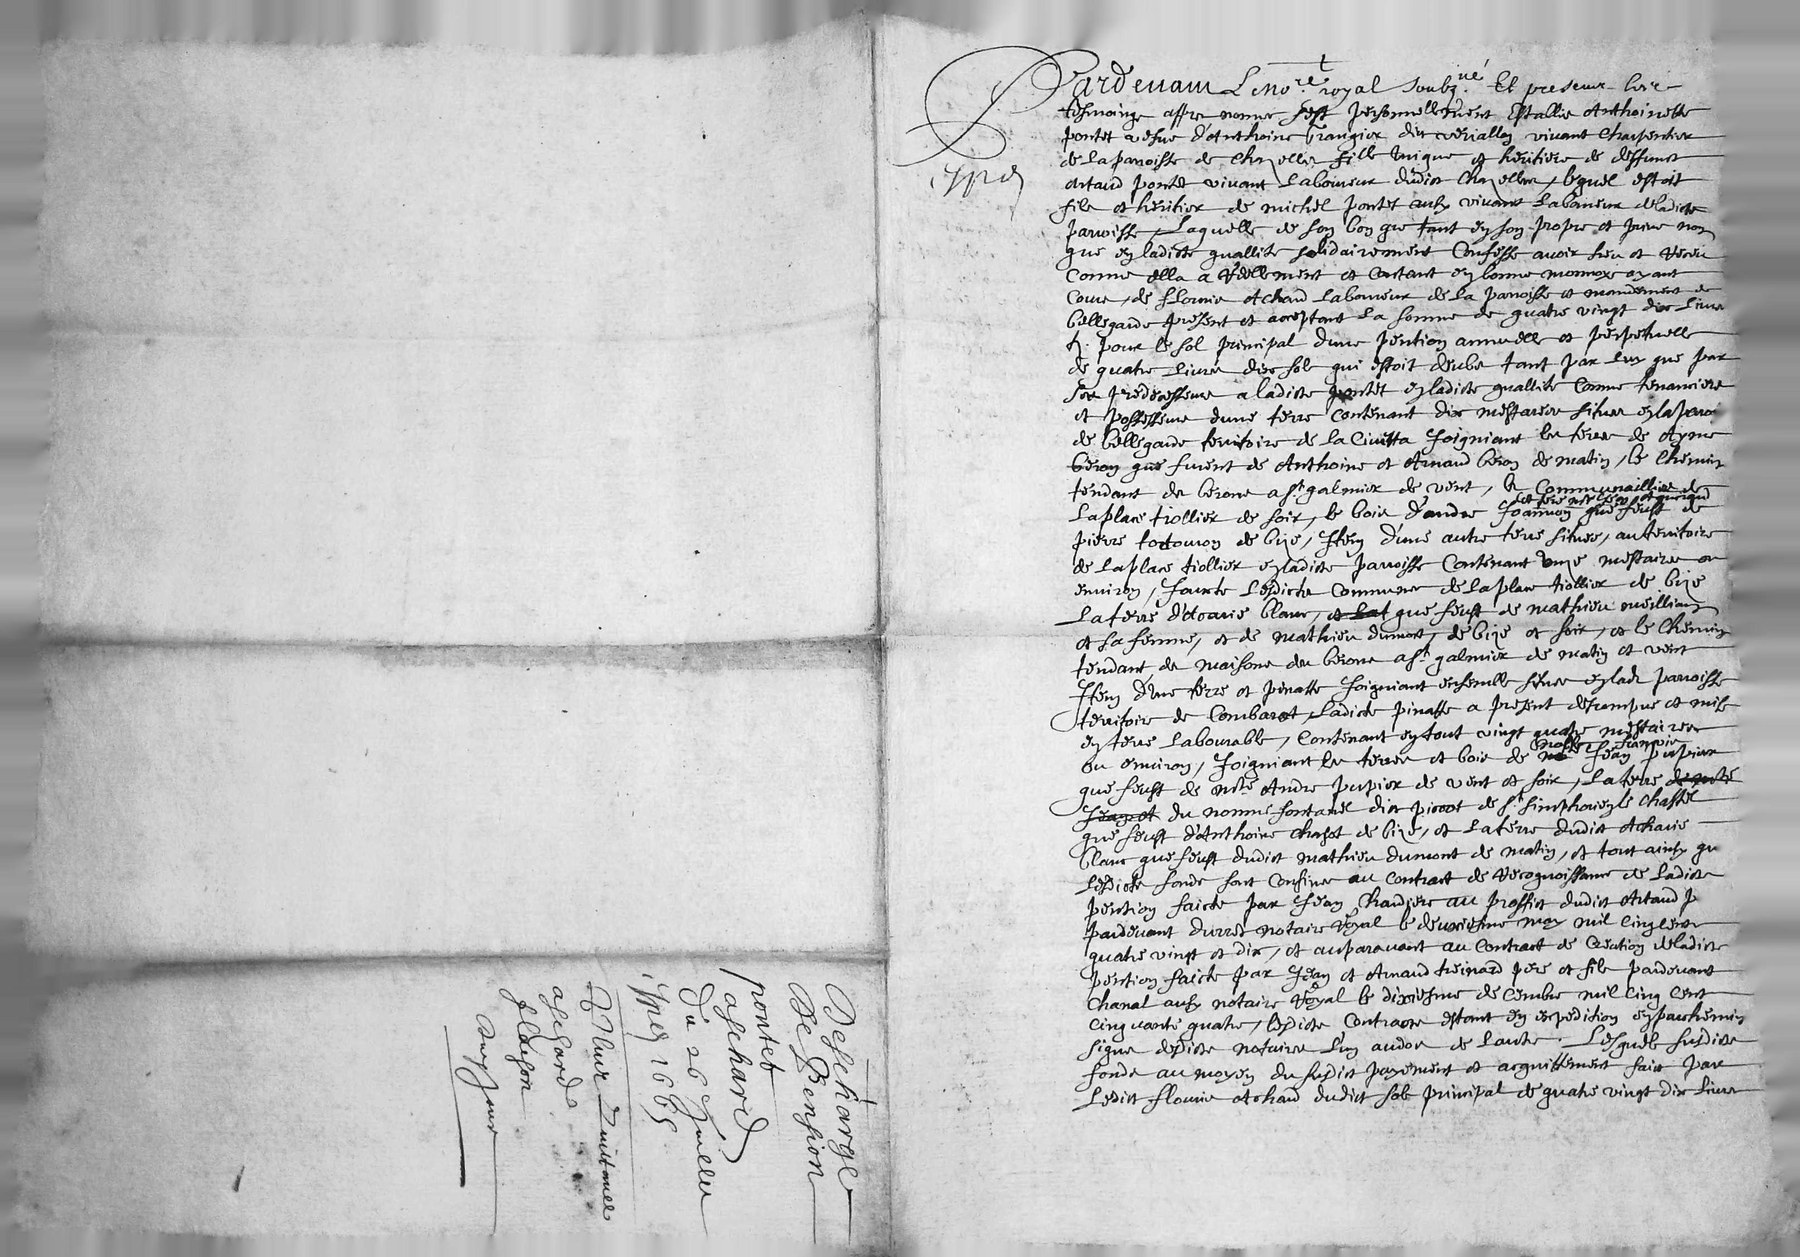 Pardevant Le no.re royal soubz.né Et presens les
tesmoingz appres nomme s'est personnellement Establie Anthoinette
pontet vesve d'Anthoine Grangier dit verialloy vivant Charpentier
de La parroisse de Chazelles fille unique et heritiere de deffunct
Artaud pontet vivant Laboureur dudict Chazelles, lequel estoit
filz et heritier de michel pontet aussy vivant Laboureur deladicte
parroisse, Laquelle de son bon gre tant en son propre et prive nom
que en ladicte quallite solidairement Confesse avoir heu et Receu
Comme elle a Reellement et Contant en bonne monnoye ayant
Cours, de flourie Achard Laboureur de La parroisse et mandement de
bellegarde present et acceptant La somme de quatre vingt dix Livres
tz. pour le sol principal d'une pention annuelle et perpetuelle
de quatre Livres dix solz qui estoit deube tant par luy que par
ses predecesseurs a ladicte pontet en ladicte quallite Comme tenanciers
et possesseurs d'une terre Contenant dix mestairees situee en la parro
de bellegarde territoire de La Civitta Joigniant les terres de Ayme
beron que furent de Anthoine et Arnaud beron de matin, le Chemin
tendant des berons a St galmier de vent, les Communaillies de
Laplace tiollier de soir, le bois d'andre Joannon que feust de
pierre de bize, Item d'une autre terre situee, au territoire
de Laplace tiollier en ladicte parroisse Contenant unze mestairees ou
environ, Jouxte Lesdictz Communes de Laplace tiollier de bize
La terre d' Blanc, et La que feust de mathieu meilliant
et sa femme, et de mathieu dumont, de bize et soir, et le Chemin
tendant des maisons des berons a St galmier de matin et vent
Item d'une terre et pinatte Joigniant ensemble situee en lad. parroisse
territoire de Combarat, Ladicte pinatte a present desrompue et mise
en terre Labourable, Contenant en tout vingt quatre mestairees
ou environ, Joigniant les terres et bois de noble françois Jean pupier
que feust de mre Andre pupier de vent et soir, La terre de mre
du nomme fontanel dit picot de St simphorien le Chastel
que feust d'Anthoine Chazot de bize, et La terre dudict
Blanc que feust dudict mathieu dumont de matin, et tout ainsy qu
Lesdictz fondz sont Confines au Contract de Recognoissance de Ladicte
pention faicte par Jean Chardiere au proffict dudict Artaud p
pardevant durret notaire Royal le deuxiesme may mil cinq cens
quatre vingt et dix, et auparavant au Contract de Creation deladicte
pention faicte par Jean et Arnaud pere et filz pardevant
Chanal aussy notaire Royal le dixiesme de Cembre mil cinq cent
Cinquante quatre, lesdictz Contractz estant en expedition en parchemin
signe desdictz notaires l'un au doz de l'autre. Lesquelz susdictz
fondz au moyen du susdict payement et acquittement faict par
Ledict flourie Achard dudict solz principal de quatre vingt dix Livres
Descharge
De Pension
pontet
aschard
Du 26 Juillet
1665
Quittance
aschard